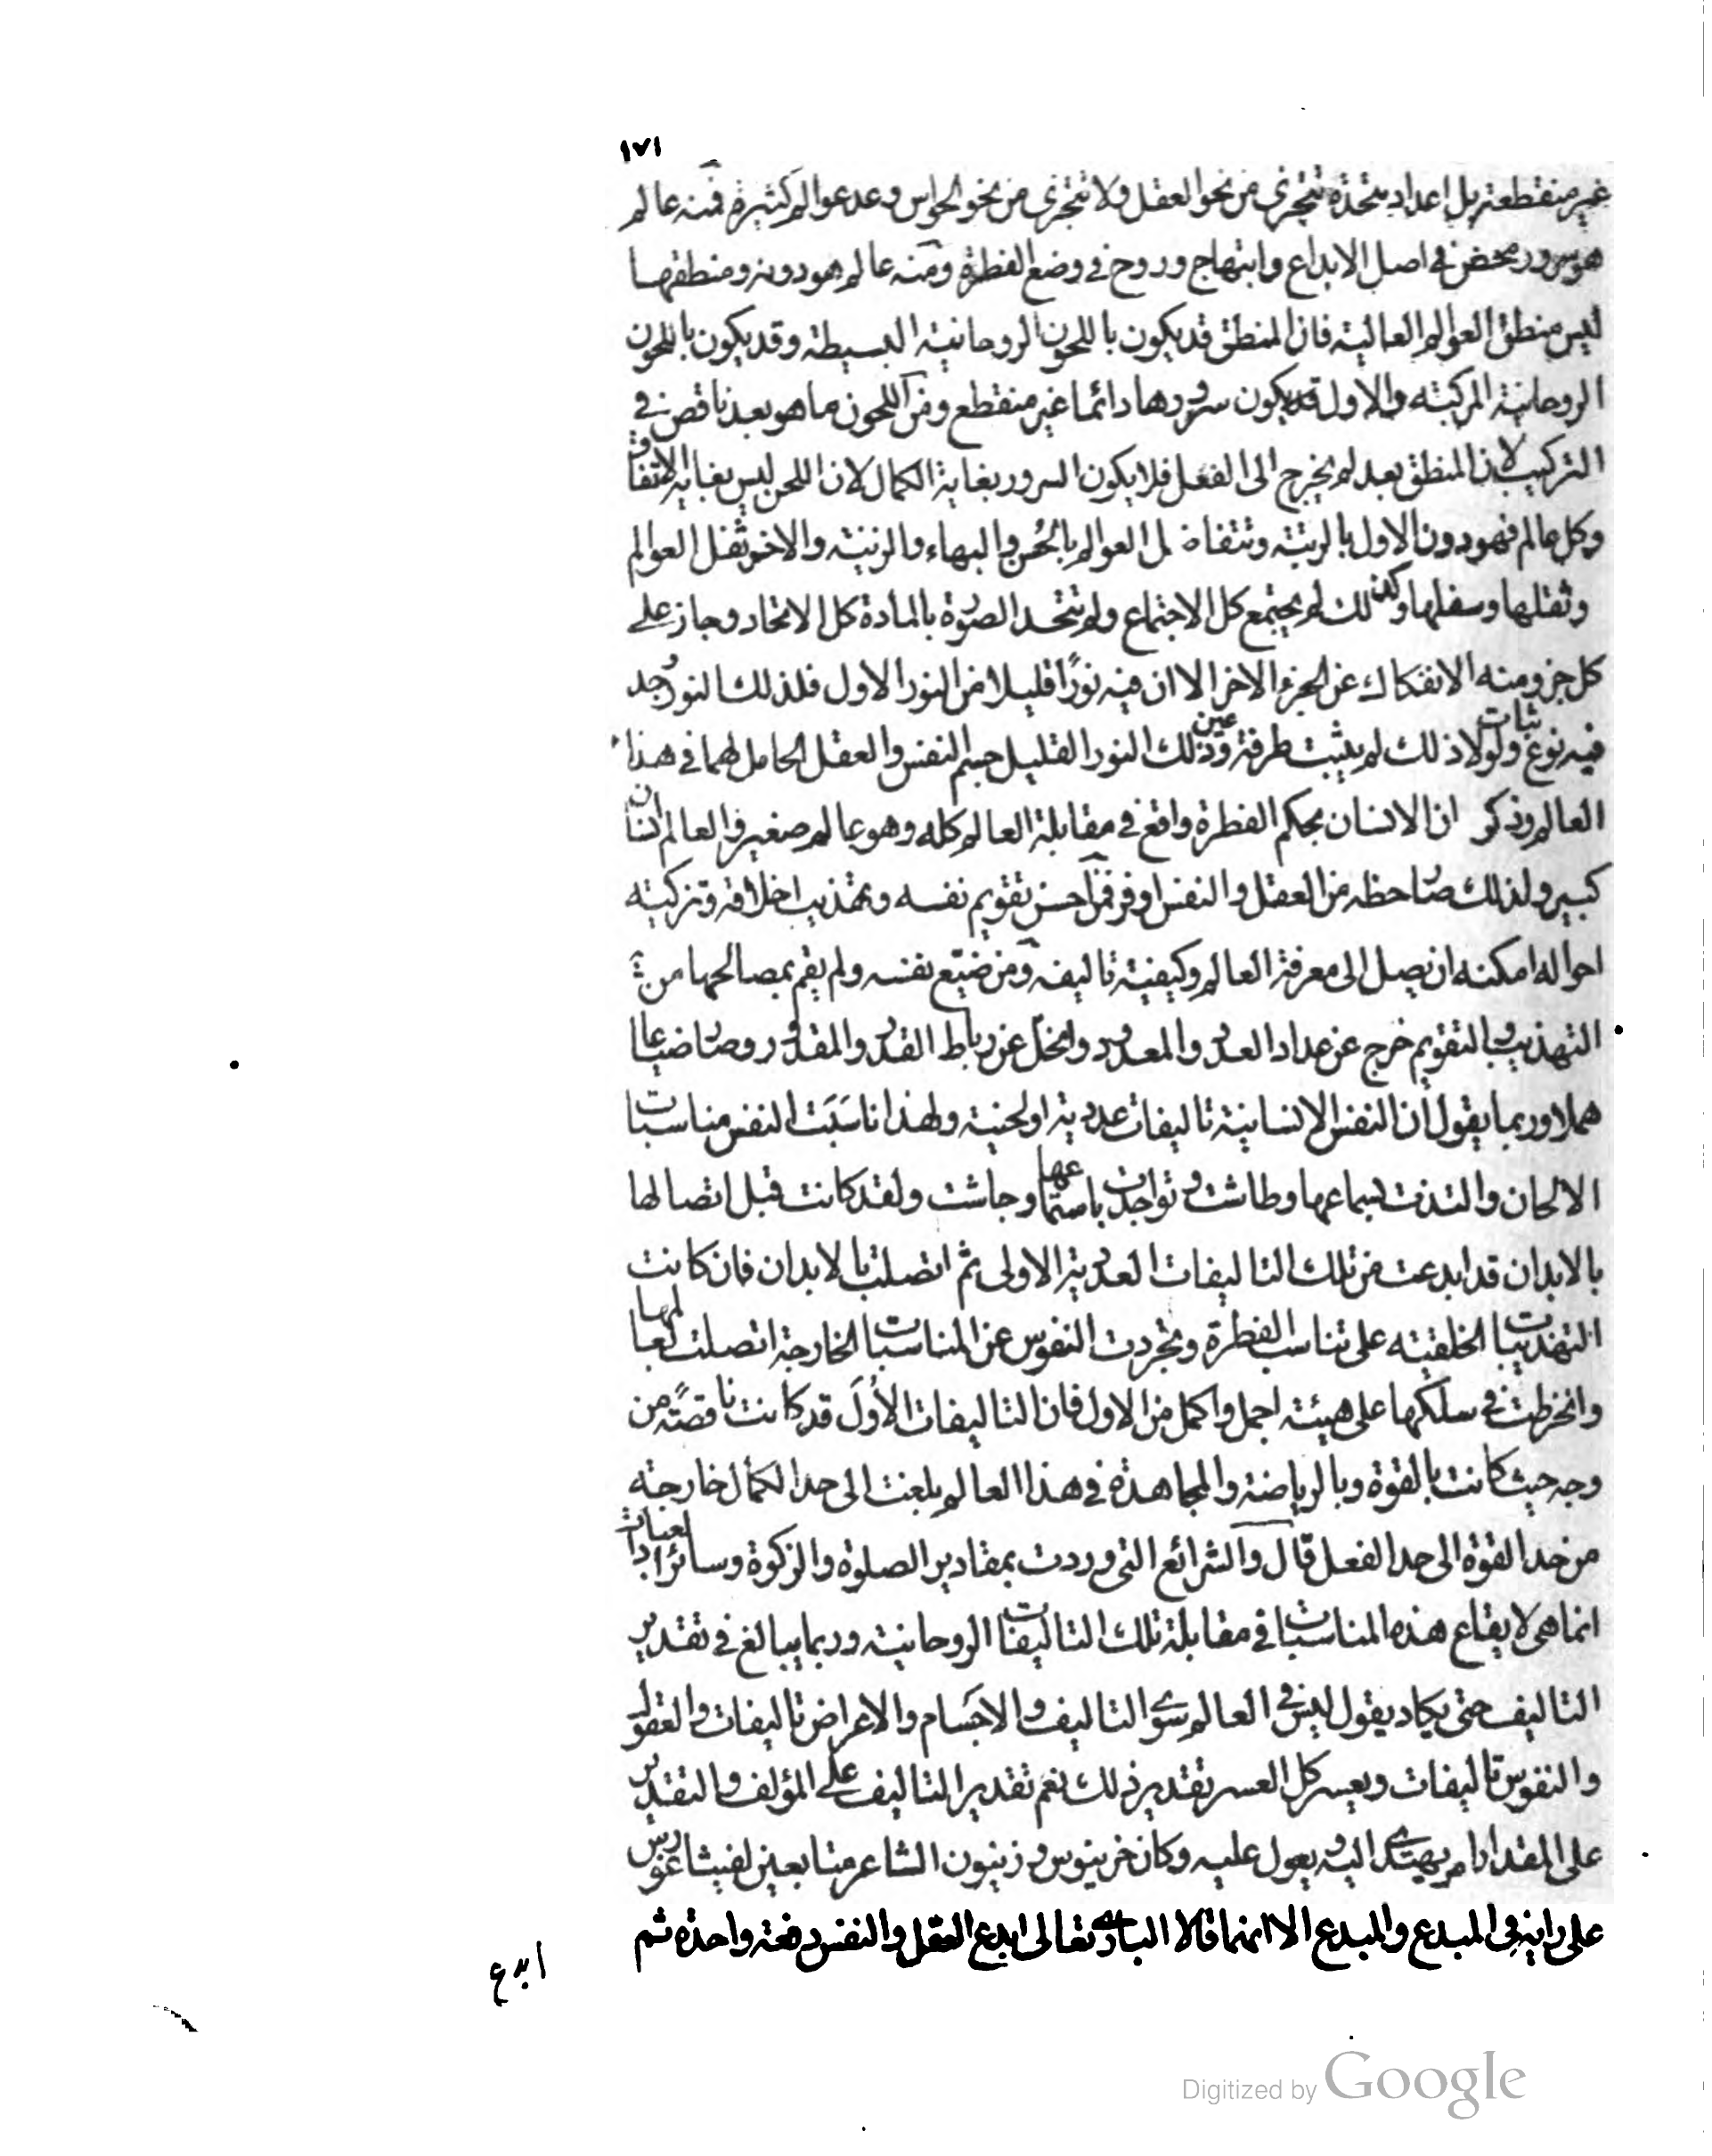 ١٧١
غير منقطعة بل اعداد متحدة تتجزى من نحو العقل ولا تتجزى من نحو الحواس وعد عوالم كثيرة فمنه عالم
هو سرور محض في اصل الابداع وابتهاج وروح في وضع الفطرة ومنه عالم هو دونه ومنطقها
ليس منطق العوالم العالية فان المنطق قد يكون باللحون الروحانية البسيطة وقد يكون باللحون
الروحانية المركبة والاول قد يكون سرورها دائما غير منقطع ومن اللحون ما هو بعد ناقص في
التركيب لان المنطق بعد لم يخرج الى الفعل فلا يكون السرور بغاية الكمال لان اللحن ليس بغاية الاتفاق
وكل عالم فهو دون الاول بالرتبة وتتفاضل العوالم بالحسن والبهاء والزينة والاخر ثفل العوالم
وثقلها وسفلها وكذلك لم يجتمع كل الاجتماع ولم تتحد الصورة بالمادة كل الاتحاد وجاز على
كل جزو منه الانفكاك عن الجزء الاخر الا ان فيه نورًا قليلا من النور الاول فلذلك النور وجد
فيه نوع ثبات ولولا ذلك لم يثبت طرفة عين وذلك النور القليل جسم النفس والعقل الحامل لهما في هذا
العالم وذكر ان الانسان بحكم الفطرة واقع في مقابلة العالم كله وهو عالم صغير والعالم انسان
كبير ولذلك صار حظه من العقل والنفس اوفر فمن احسن تقويم نفسه وتهذيب اخلاقه وتزكية
احواله امكنه ان يصل الى معرفة العالم وكيفية تاليفه ومن ضيّع نفسه ولم يقم بمصالحها من
التهذيب والتقويم خرج عن عداد العدد والمعدود وانحل عن رباط القدر والمقدور وصار ضياعا
هملا وربما يقول ان النفس الانسانية تاليفات عددية او لحنية ولهذا ناسَبَت النفس مناسبات
الالحان والتذت بسماعها وطاشت وتواجدت باستماعها وجاشت ولقد كانت قبل اتصالها
بالابدان قد ابدعت من تلك التاليفات العددية الاولى ثم اتصلت بالابدان فان كانت
التهذيبات الخلقية على تناسب الفطرة وتجردت النفوس عن المناسبات الخارجة اتصلت بعالمها
وانخرطت في سلكها على هيئة اجمل واكمل من الاول فان التاليفات الأُوَل قد كانت ناقصةً من
وجه حيث كانت بالقوة وبالرياضة والمجاهدة في هذا العالم بلغت الى حد الكمال خارجة
من حد القوة الى حد الفعل قال والشرائع التي وردت بمقادير الصلوة والزكوة وسائر العبادات
انما هي لايقاع هذه المناسبات في مقابلة تلك التاليفات الروحانية وربما يبالغ في تقدير
التاليف حتى يكاد يقول ليس في العالم سوى التاليف والاجسام والاعراض تاليفات والعقول
والنفوس تاليفات ويعسر كل العسر تقدير ذلك نعم تقدير التاليف على المؤلف والتقدير
على المقدار امر يهتدى اليه ويعول عليه وكان خرينوس وزينون الشاعر متابعين لفيثاغورس
على رايه في المبدع والمبدع الا انهما قالا الباري تعالى ابدع العقل والنفس دفعة واحدة ثم
ابدع
Digitized by Google